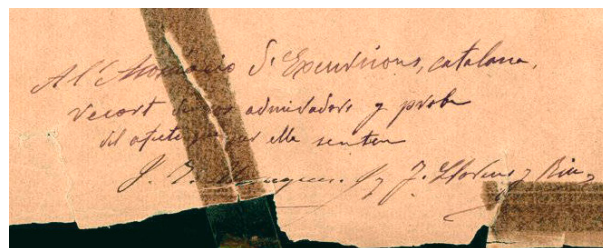 A l'Associació d'Excursions, catalana,
recort dels admiradors y proba
del afecte que per ella senten
J. y J. Llorens y Riu